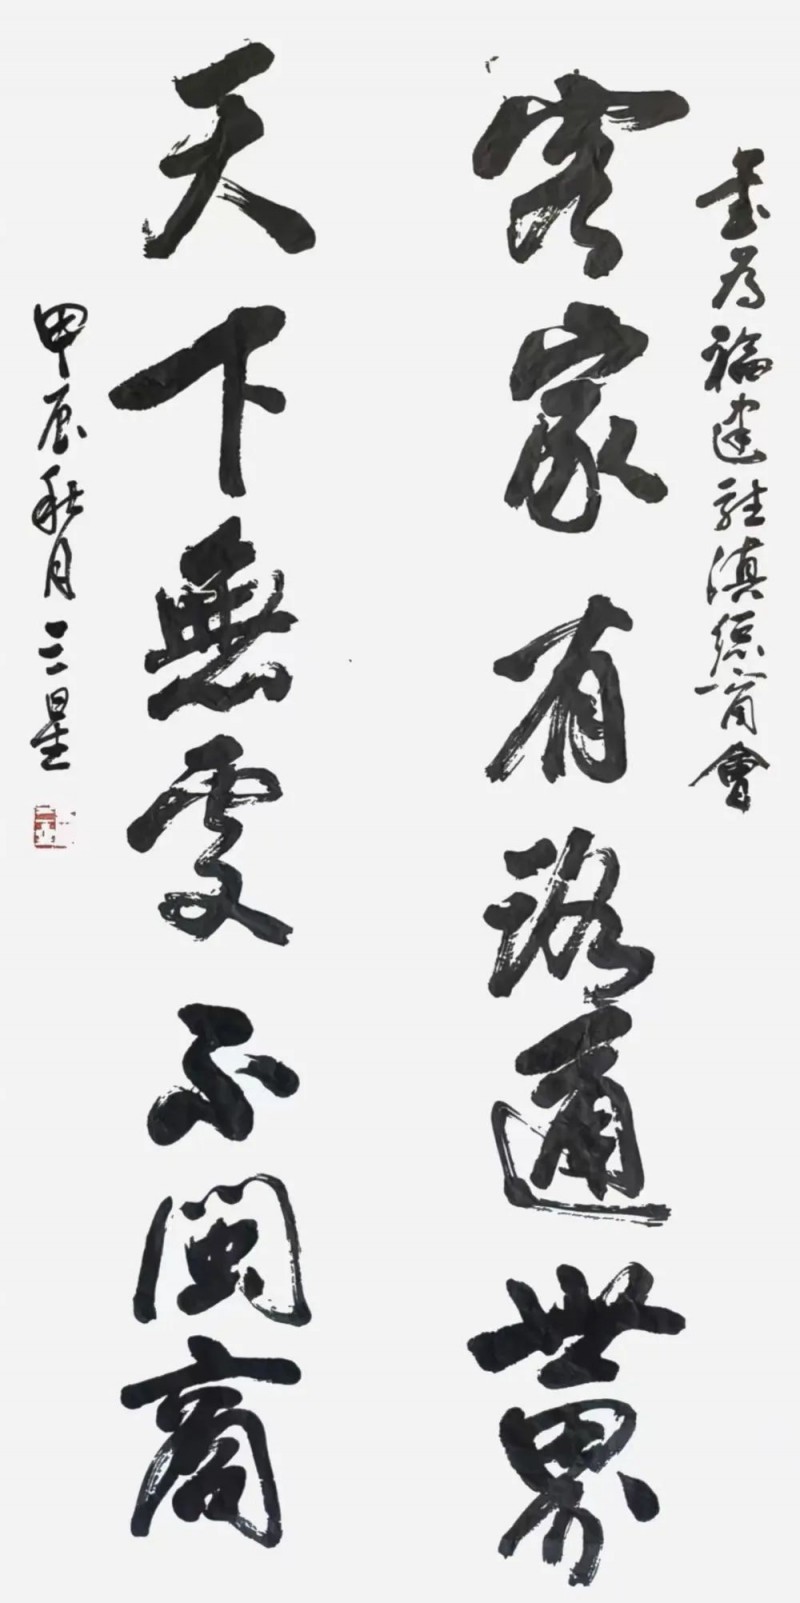 書為福建駐滇總商會
客家有路通世界
天下無處不閩商
甲辰秋月三星